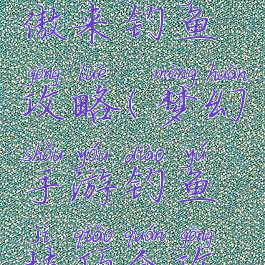 傲来钓鱼
gōng lüè mèng huàn
攻略(梦幻
shǒu yóu diào yú
手游钓鱼
jì qiǎo quán gōng
技巧全攻